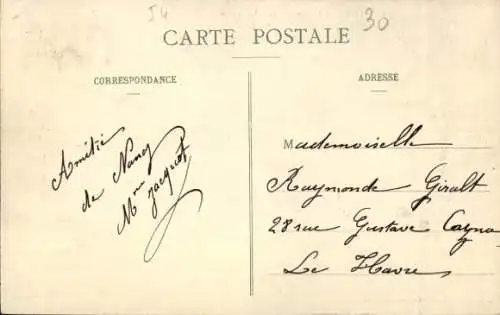 54
30
CARTE POSTALE
CORRESPONDANCE
ADRESSE
Amitié
de Nancy
Mme Jacquot
Mademoiselle
Raymonde Giralt
28 rue Gustave Cazavan
Le Havre